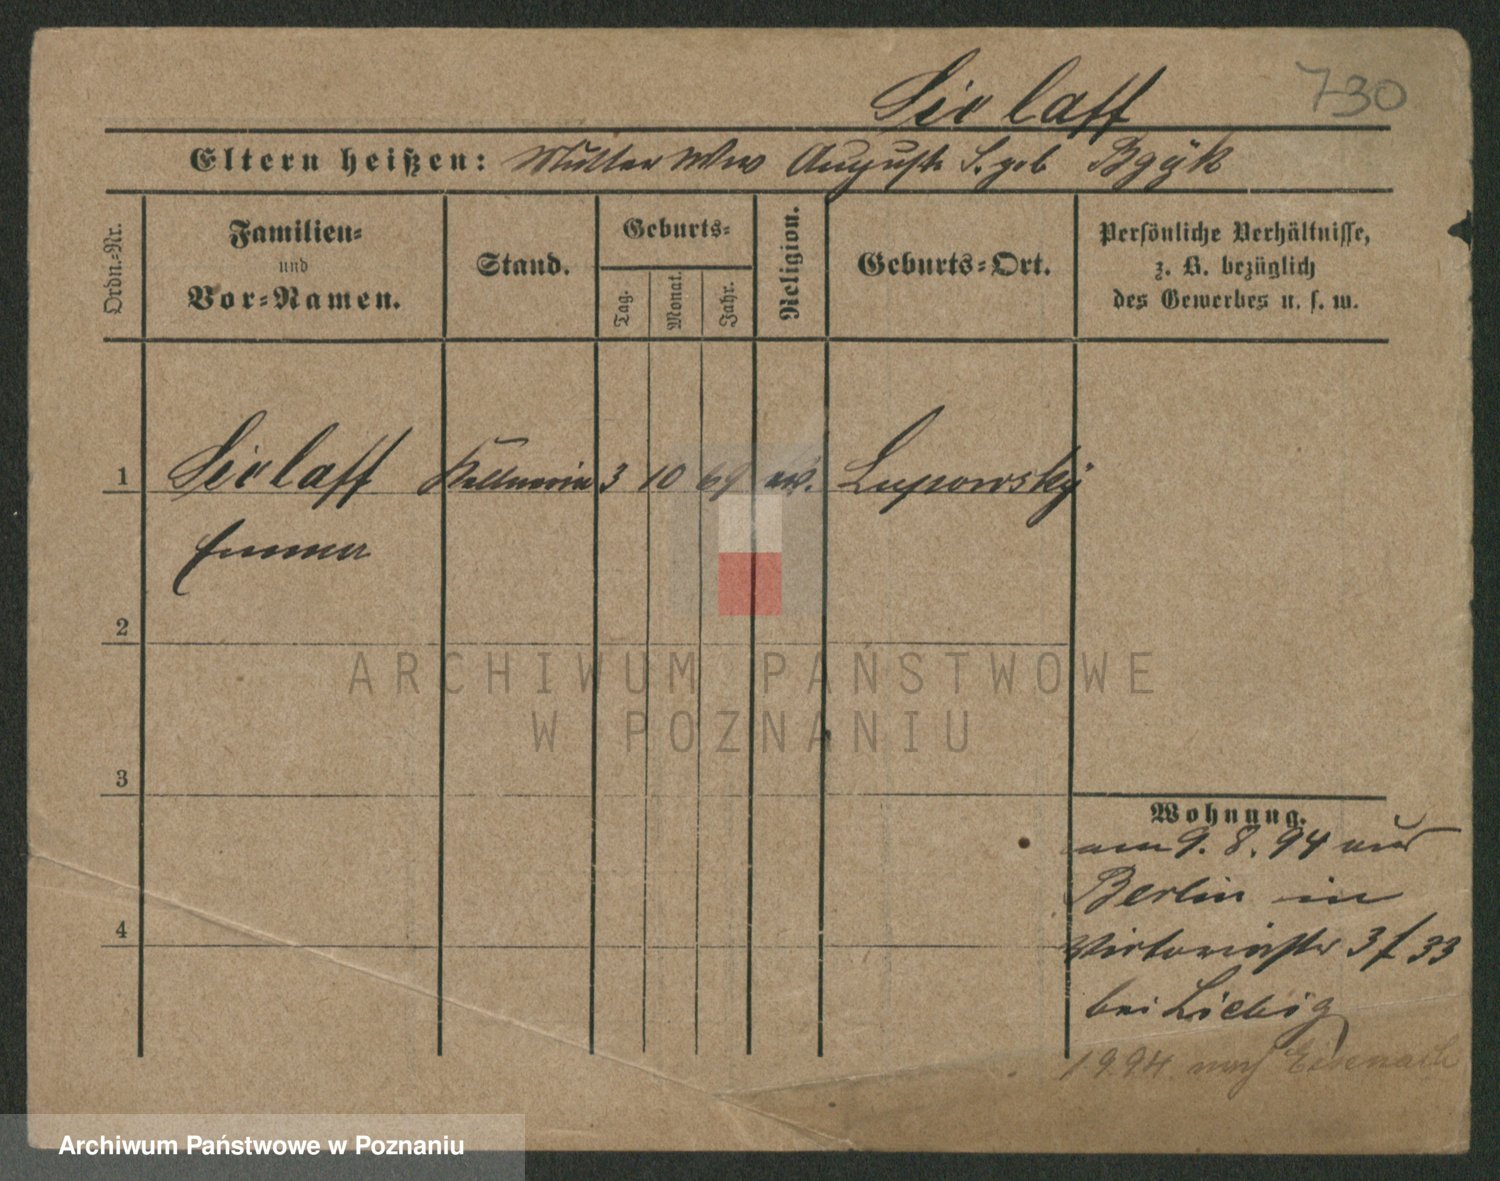 Siolaff 730
Eltern heißen: Mutter Wwe Auguste S. geb
Ordn.-Nr.
Familien-
und
Vor-Namen.
Stand.
Geburts-
Tag.
Monat.
Jahr.
Religion.
Geburts-Ort.
Persönliche Verhältnisse,
z. B. bezüglich
des Gewerbes u. s. w.
1 Siolaff Kellnerin 3 10 69 ev. Lupowsky
Emma
2
3
4
ARCHIWUM PAŃSTWOWE
W POZNANIU
Wohnung.
am 9. 8. 94 aus
Berlin in
Victoriastr 33
bei Liebig
1 9 94 nach Eisenach
Archiwum Państwowe w Poznaniu